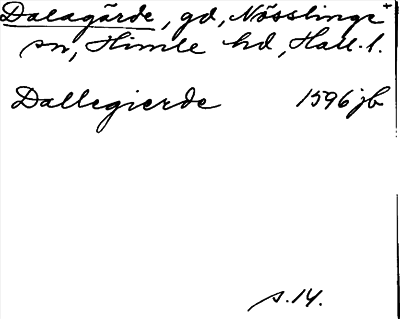 Dalagärde, gd, Nösslinge+
sn, Himle hd, Hall. l.
Dallegierde 1596 jb
s. 14.